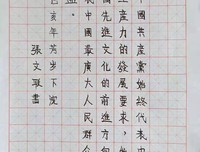 中國共產黨始終代表中
生產力的發展要求，始
國先進文化的前進方向
中國最廣大人民群众
益。
亥年芳岁下浣
張文联書